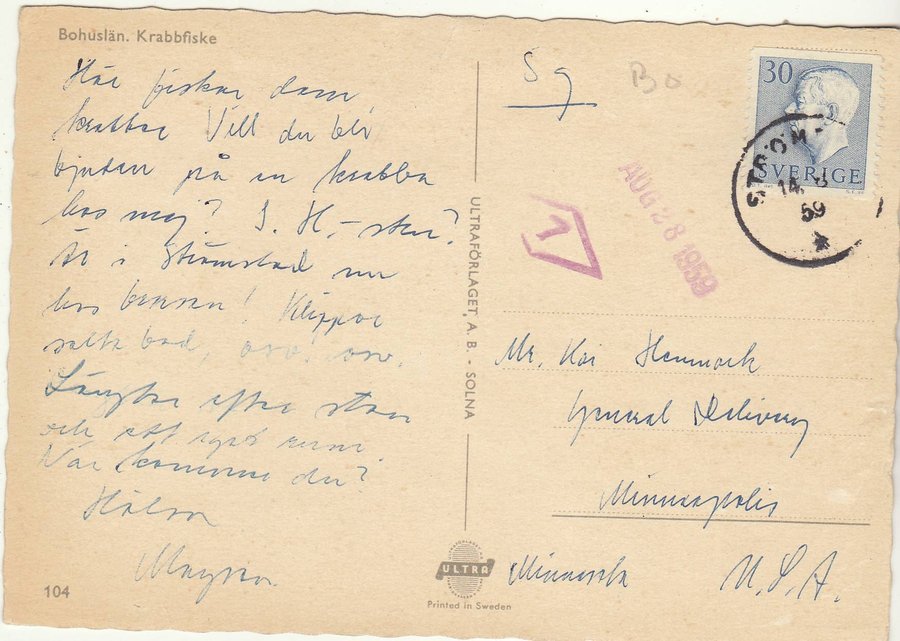 Bohuslän. Krabbfiske
Här fiskar dom
krabbor Vill du bli
bjuden på en krabba
hos mej? S. H.,
Är i Strömstad nu
hos Klippor
salta bad, osv. osv.
Längtar efter stan
och ett eget rum.
När kommer du?
Hälsn
104
ULTRAFÖRLAGET, A. B. - SOLNA
ULTRA
Printed in Sweden
Sg
30
SVERIGE
STRÖM-
14. 8
59
AUG 28 1959
1
Mr. Kai
General Delivery
Minneapolis
Minnesota U. S. A.